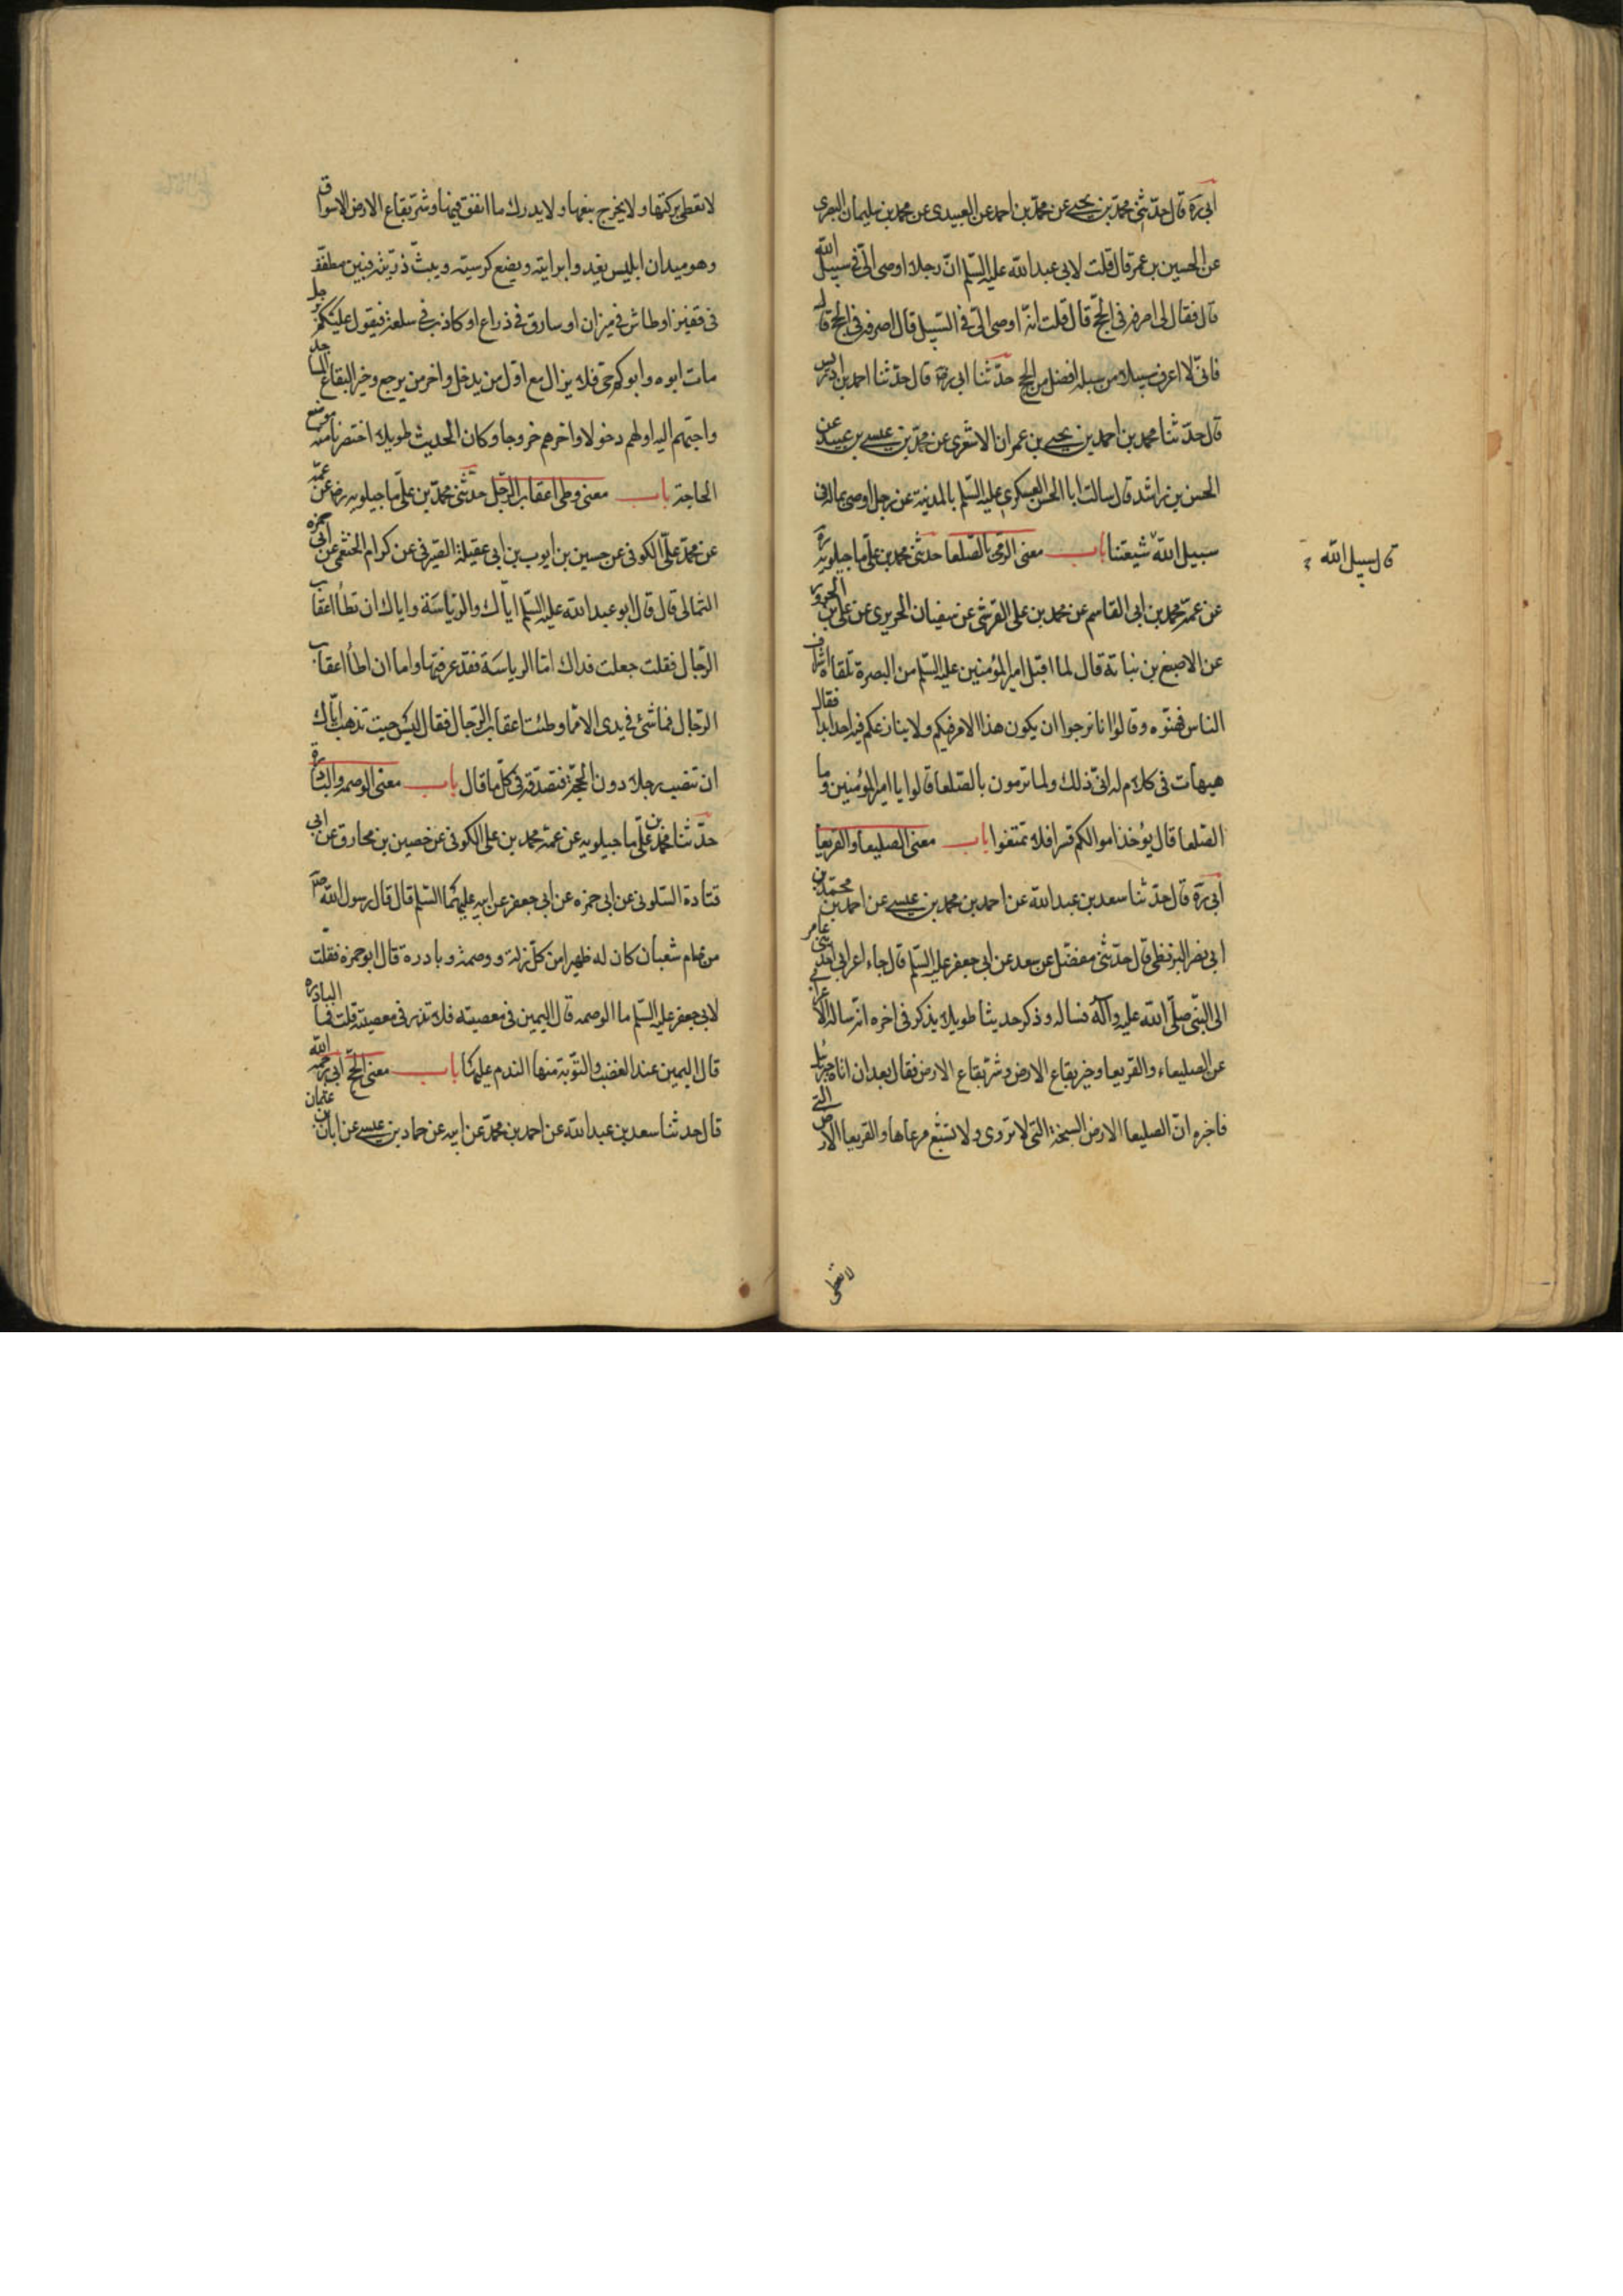 ابى ره قال حدثنى محمد بن يحيى عن محمد بن احمد عن العبيدى عن محمد بن سليمان البصرى
عن الحسين بن عمر قال قلت لابى عبد الله عليه السلم ان رجلا اوصى الىّ فى سبيل الله
قال فقال لى اصرفه فى الحج قال قلت انه اوصى الىّ فى السبيل قال اصرفه فى الحج قال
فانى لا اعرف سبيلا من سبله افضل من الحج حدثنا ابى ره قال حدثنا احمد بن ادريس
قال حدثنا محمد بن احمد بن يحيى بن عمران الاشعرى عن محمد بن عيسى بن عبيد عن
الحسن بن راشد قال سالت ابا الحسن العسكرى عليه السلم بالمدينة عن رجل اوصى بماله فى
سبيل الله شيعتنا باب معنى الرمى بالصلعا حدثنى محمد بن على ماجيلويه ره
قال سبيل الله
عن عمه محمد بن ابى القاسم عن محمد بن على القرشى عن سفيان الحريرى عن على بن الحزور
عن الاصبغ بن نباتة قال لما اقبل امير المؤمنين عليه السلم من البصرة تلقاه اشراف
الناس فهنوه وقالوا انا نرجوا ان يكون هذا الامر فيكم ولا ينازعكم فيه احد ابدا فقال
هيهات فى كلام له انى ذلك ولما ترمون بالصلعا قالوا يا امير المؤمنين وما
الصلعا قال يؤخذ اموالكم قسرا فلا تمتنعوا باب معنى الصليعا والقريعا
ابى ره قال حدثنا سعد بن عبد الله عن احمد بن محمد بن عيسى عن احمد بن محمد بن
ابى نصر البزنطى قال حدثنى مفضل عن سعد عن ابى جعفر عليه السلم قال جاء اعرابى احد بنى عامر
الى النبى صلى الله عليه وآله فساله وذكر حديثا طويلا يذكر فى اخره انه ساله الاعرابى
عن الصليعاء والقريعا وخير بقاع الارض وشر بقاع الارض فقال بعد ان اتاه جبرئيل
فاخبره ان الصليعا الارض السبخة التى لا تروى ولا تشبع مرعاها والقريعا الارض التى
لا تعطى
لا تعطى بركتها ولا يخرج ينعها ولا يدرك ما انفق فيها وشر بقاع الارض الاسواق
وهو ميدان ابليس يغدوا برايته ويضع كرسيه ويبث ذريته فبين مطفف
فى قفيز او طاش فى ميزان او سارق فى ذراع او كاذب فى سلعة فيقول عليكم برجل
مات ابوه وابوكم حى فلا يزال مع اول من يدخل واخر من يرجع وخير البقاع المساجد
واحبهم اليه اولهم دخولا واخرهم خروجا وكان الحديث طويلا اختصرنا منه موضع
الحاجة باب معنى وطى اعقاب الرجل حدثنى محمد بن على ماجيلويه رض عن عمه
عن محمد على الكوفى عن حسين بن ايوب بن ابى عقيلة الصيرفى عن كرام الخثعمى عن ابى حمزه
الثمالى قال قال ابو عبد الله عليه السلم اياك والرياسة واياك ان تطأ اعقاب
الرجال فقلت جعلت فداك اما الرياسة فقد عرفتها واما ان اطأ اعقاب
الرجال فما شئ فى يدى الا مما وطئت اعقاب الرجال فقال ليس حيث تذهب اياك
ان تنصب رجلا دون الحجة فتصدقه فى كل ما قال باب معنى الوصمه والبادرة
حدثنا محمد بن على ماجيلويه عن عمه محمد بن على الكوفى عن حصين بن مخارق عن ابى
قتادة السلولى عن ابى حمزه عن ابى جعفر عن ابيه عليهما السلم قال قال رسول الله ص
من صام شعبان كان له طهرا من كل زلة ووصمة وبادره قال ابو حمزه فقلت
لابى جعفر عليه السلم ما الوصمه قال اليمين فى معصيته فلا نذر فى معصية قلت فما البادره
قال اليمين عند الغضب والتوبة منها الندم عليها باب معنى الحج ابى رحمه الله
قال حدثنا سعد بن عبد الله عن احمد بن محمد عن ابيه عن حماد بن عيسى عن ابان بن عثمان